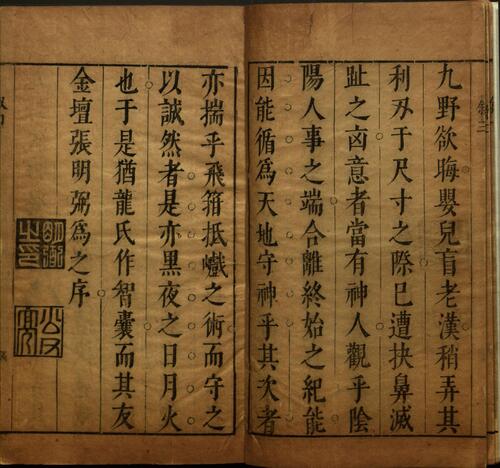 九野欲晦嬰兒盲老漢稍弄其
利刃于尺寸之際巳遭抉鼻滅
趾之㐫意者當有神人觀乎陰
陽人事之端合離終始之紀能
因能循爲天地守神乎其次者
亦揣乎飛箝抵巇之術而守之
以誠然者是亦黑夜之日月火
也于是猶龍氏作智囊而其友
金壇張明弼爲之序